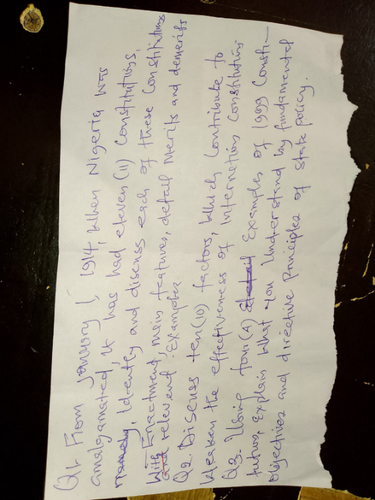 Q1. From January 1, 1914, when Nigeria was
amalgamated, it has had eleven (11) Constitutions,
namely, Identify and discuss each of these Constitutions
with Enactment, main features, detail merits and demerits
and relevant Examples
Q2. Discuss ten (10) factors, which contribute to
weaken the effectiveness of Internation Constitution
Q3. Using four (4) detail Examples of 1999 Consti-
tution, Explain what you understand by fundamental
objectives and directive principles of state policy.